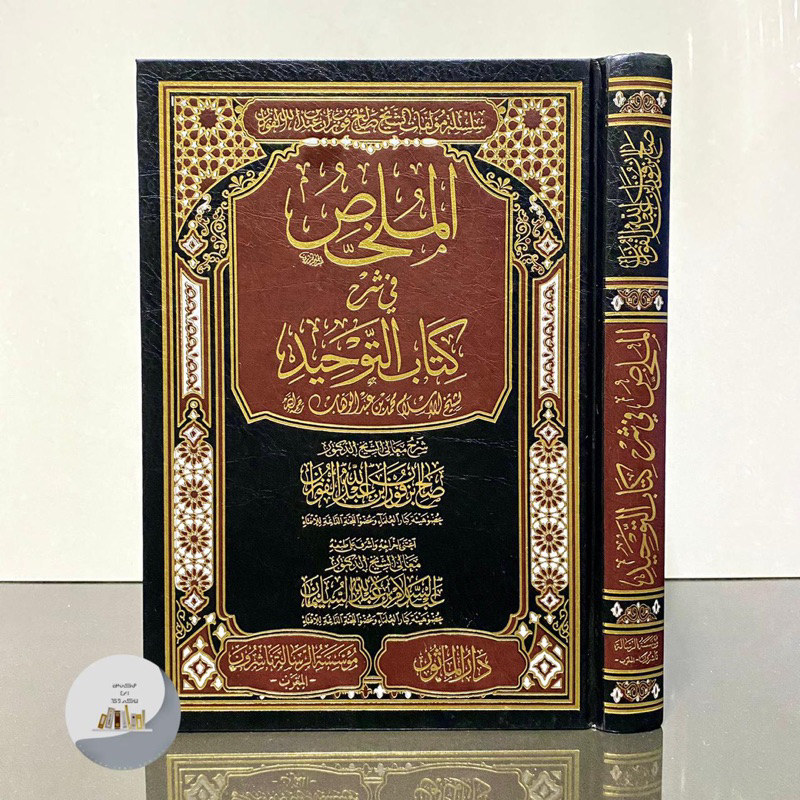 سلسلة مؤلفات الشيخ صالح بن فوزان بن عبد الله الفوزان
الملخص
في شرح
كتاب التوحيد
لشيخ الإسلام محمد بن عبد الوهاب رحمه الله
شرح معالي الشيخ الدكتور
صالح بن فوزان بن عبد الله الفوزان
عضو هيئة كبار العلماء وعضو اللجنة الدائمة للإفتاء
اعتنى بإخراجه وأشرف على طبعه
معالي الشيخ الدكتور
عبد السلام بن عبد الله السليمان
عضو هيئة كبار العلماء وعضو اللجنة الدائمة للإفتاء
دار المأثور
مؤسسة الرسالة ناشرون
- المغرب -
صالح بن فوزان بن عبد الله الفوزان
الملخص في شرح كتاب التوحيد
مؤسسة الرسالة
ناشرون - المغرب -